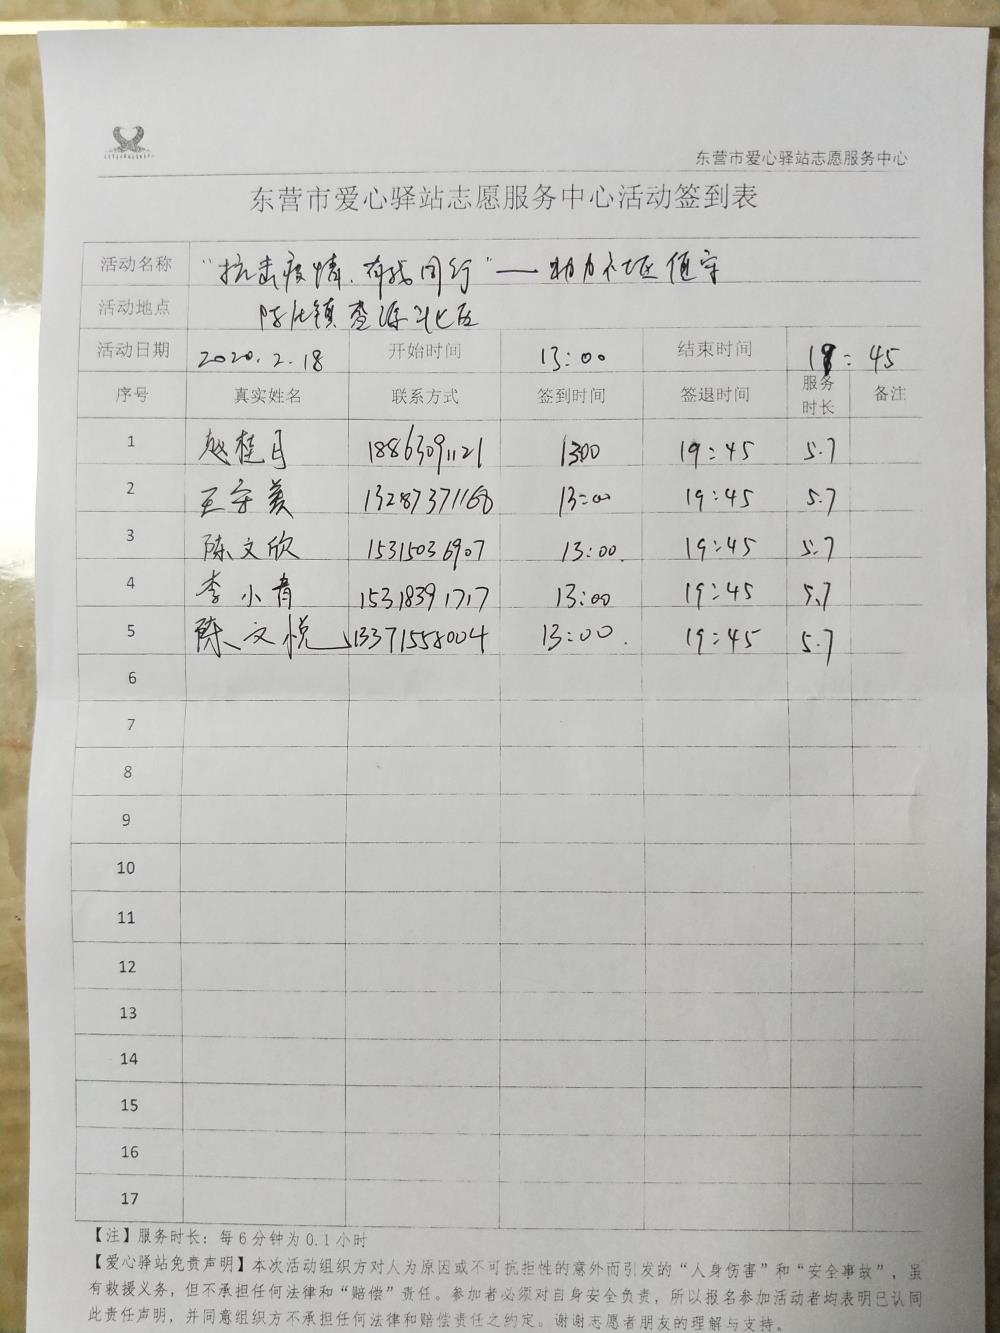 东营市爱心驿站志愿服务中心
东营市爱心驿站志愿服务中心活动签到表
活动名称 "抗击疫情、有我同行"—助力社区值守
活动地点 陈庄镇 北区
活动日期 2020.2.18 开始时间 13:00 结束时间 18:45
序号 真实姓名 联系方式 签到时间 签退时间 服务时长 备注
1 赵桂月 18863091121 1300 19:45 5.7
2 王守美 13287371168 13:00 19:45 5.7
3 陈文欣 15315036907 13:00. 19:45 5.7
4 李小青 15318391717 13:00 19:45 5.7
5 陈文悦 13371558004 13:00. 19:45 5.7
6
7
8
9
10
11
12
13
14
15
16
17
【注】服务时长：每6分钟为0.1小时
【爱心驿站免责声明】本次活动组织方对人为原因或不可抗拒性的意外而引发的“人身伤害”和“安全事故”，虽
有救援义务，但不承担任何法律和“赔偿”责任。参加者必须对自身安全负责，所以报名参加活动者均表明已认同
此责任声明，并同意组织方不承担任何法律和赔偿责任之约定。谢谢志愿者朋友的理解与支持。